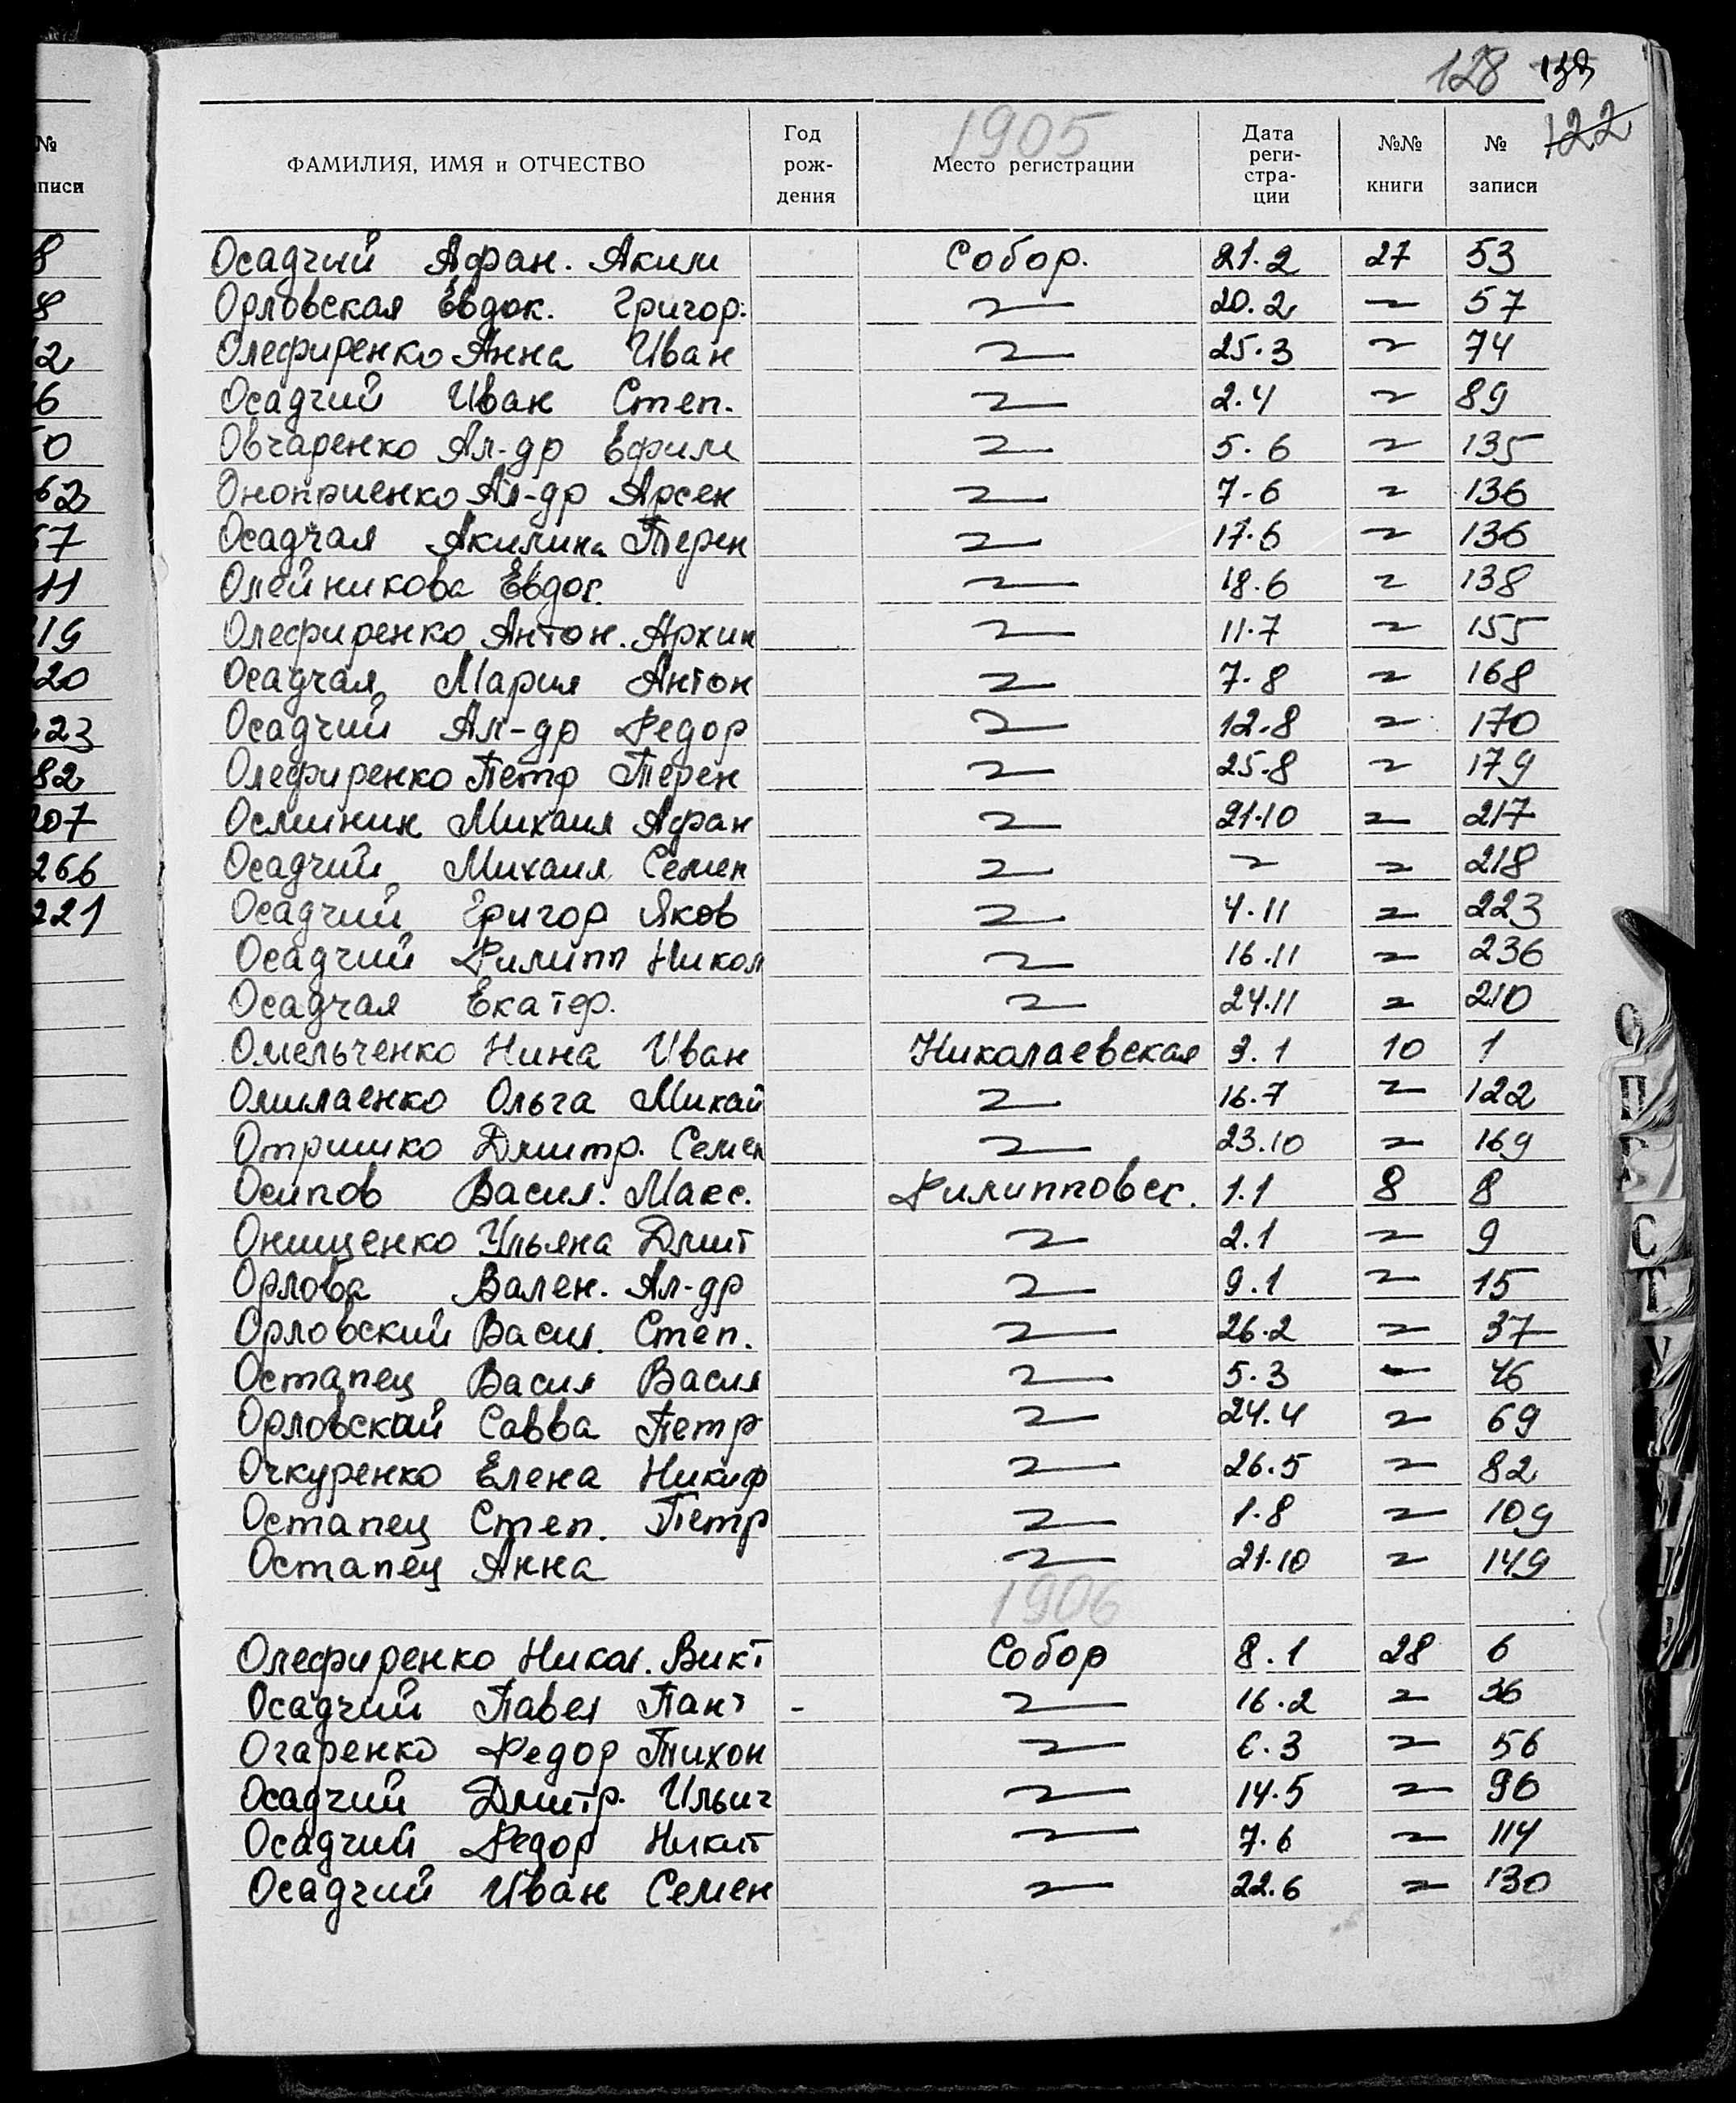 128 138
122
№
записи
8
8
12
6
0
62
57
11
119
120
123
82
207
266
221
1905
ФАМИЛИЯ, ИМЯ и ОТЧЕСТВО Год рож- дения Место регистрации Дата реги- стра- ции №№ книги № записи
Осадчий Афан. Аким Собор. 21.2 27 53
Орловская Евдок. Григор. 〃 20.2 〃 57
Олефиренко Анна Иван 〃 25.3 〃 74
Осадчий Иван Степ. 〃 2.4 〃 89
Овчаренко Ал-др Ефим 〃 5.6 〃 135
Оноприенко Ал-др Арсен 〃 7.6 〃 136
Осадчая Акилина Терен 〃 17.6 〃 136
Олейникова Евдок. 〃 18.6 〃 138
Олефиренко Антон. Архип 〃 11.7 〃 155
Осадчая Мария Антон 〃 7.8 〃 168
Осадчий Ал-др Федор 〃 12.8 〃 170
Олефиренко Петр Терен 〃 25.8 〃 179
Осминин Михаил Афан 〃 21.10 〃 217
Осадчий Михаил Семен 〃 〃 〃 218
Осадчий Григор Яков 〃 4.11 〃 223
Осадчий Филипп Никол 〃 16.11 〃 236
Осадчая Екатер. 〃 24.11 〃 210
Омельченко Нина Иван Николаевская 3.1 10 1
Омилаенко Ольга Михай 〃 16.7 〃 122
Отришко Дмитр. Семен 〃 23.10 〃 169
Осипов Васил. Макс. Филипповск. 1.1 8 8
Онищенко Ульяна Дмит 〃 2.1 〃 9
Орлова Вален. Ал-др 〃 9.1 〃 15
Орловский Васил. Степ. 〃 26.2 〃 37
Остапец Васил Васил 〃 5.3 〃 46
Орловский Савва Петр 〃 24.4 〃 69
Очкуренко Елена Никиф 〃 26.5 〃 82
Остапец Степ. Петр 〃 1.8 〃 109
Остапец Анна 〃 21.10 〃 149
1906
Олефиренко Никол. Викт Собор 8.1 28 6
Осадчий Павел Пант - 〃 16.2 〃 36
Огаренко Федор Тихон 〃 6.3 〃 56
Осадчий Дмитр. Ильич 〃 14.5 〃 96
Осадчий Федор Никит 〃 7.6 〃 114
Осадчий Иван Семен 〃 22.6 〃 130
О
П
С
Т
У